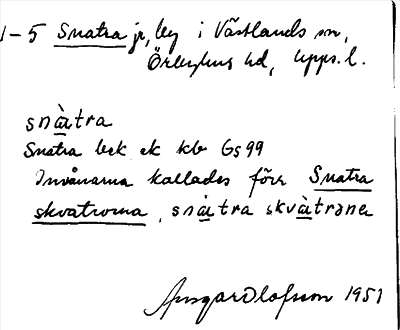 1-5 Snatra jr, by i Västlands sn,
Örbyhus hd, Upps. l.
snàtra
Snatra bek ek kb Gs 99
Invånarna kallades förr Snatra
skvatrorna, snàtra skvàtrəner
Ansgar Olofsson 1951